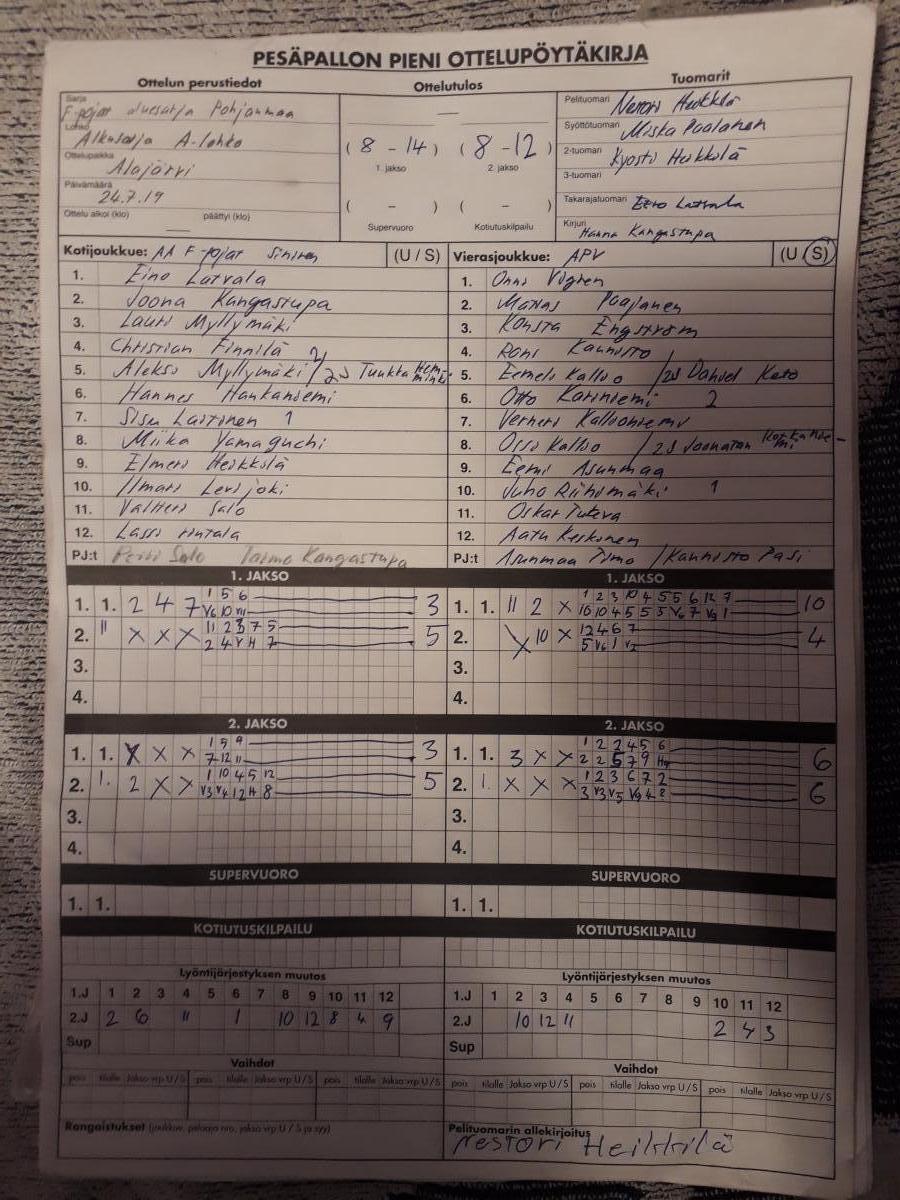 PESÄPALLON PIENI OTTELUPÖYTÄKIRJA
Ottelun perustiedot
Ottelutulos
Tuomarit
Sarja
F-pojat aluesarja Pohjanmaa
Lohko
Alkusarja A-lohko
Ottelupaikka
Alajärvi
Päivämäärä
24.7.19
Ottelu alkoi (klo) päättyi (klo)
( 8 - 14 ) ( 8 - 12 )
1. jakso 2. jakso
( - ) ( - )
Supervuoro Kotiutuskilpailu
Pelituomari Nestori Heikkilä
Syöttötuomari Miska Paalanen
2-tuomari Kyösti Heikkilä
3-tuomari
Takarajatuomari Eero Latvala
Kirjuri Hanna Kangastupa
Kotijoukkue: AA F-pojat Sininen (U / S)
1. Eino Latvala
2. Joona Kangastupa
3. Lauri Myllymäki
4. Christian Finnilä 2
5. Aleksi Myllymäki / 2J Tuukka Hemminki
6. Hannes Hankaniemi
7. Sisu Laitinen 1
8. Miika Yamaguchi
9. Elmeri Heikkilä
10. Ilmari Levijoki
11. Valtteri Salo
12. Lassi
PJ:t Pertti Salo Kangastupa
Vierasjoukkue: APV (U / S)
1. Onni
2. Matias Paajanen
3. Konsta Engström
4. Roni Kannisto
5. Eemeli Kallio / 2J Daniel Keto
6. Otto Kariniemi 2
7. Verneri Kallioniemi
8. Ossi Kallio / 2J Joonatan
9. Eemi Asunmaa
10. Juho Riihimäki 1
11. Oskar
12. Aatu Keskinen
PJ:t Asunmaa Timo / Kannisto Pasi
1. JAKSO
1. 1. 2 4 7 1 5 6 3
V6 10 VII
2. 11 X X X 11 2 3 7 5 5
2 4 V H 7
3.
4.
1. JAKSO
1. 1. 11 2 X 1 2 3 10 4 5 5 6 12 7 10
10 10 4 5 5 5 V6 7 V9 1
2. X 10 X 12 4 6 7 4
5 V6 1 V2
3.
4.
2. JAKSO
1. 1. X X X 1 5 9 3
7 12 11
2. 1. 2 X X 1 10 4 5 12 5
V3 V4 12 H 8
3.
4.
2. JAKSO
1. 1. 3 X X 1 2 2 4 5 6 6
2 2 5 7 9 H9
2. 1. X X X 1 2 3 6 7 2 6
3 V3 V5 V9 4 8
3.
4.
SUPERVUORO
1. 1.
SUPERVUORO
1. 1.
KOTIUTUSKILPAILU
KOTIUTUSKILPAILU
Lyöntijärjestyksen muutos
1.J 1 2 3 4 5 6 7 8 9 10 11 12
2.J 2 6 11 1 10 12 8 4 9
Sup
Lyöntijärjestyksen muutos
1.J 1 2 3 4 5 6 7 8 9 10 11 12
2.J 10 12 11 2 4 3
Sup
Vaihdot
pois tilalle Jakso vrp U / S pois tilalle Jakso vrp U / S pois tilalle Jakso vrp U / S
Vaihdot
pois tilalle Jakso vrp U / S pois tilalle Jakso vrp U / S pois tilalle Jakso vrp U / S
Rangaistukset (joukkue, pelaaja nro, jakso vrp U / S ja syy)
Pelituomarin allekirjoitus
Nestori Heikkilä